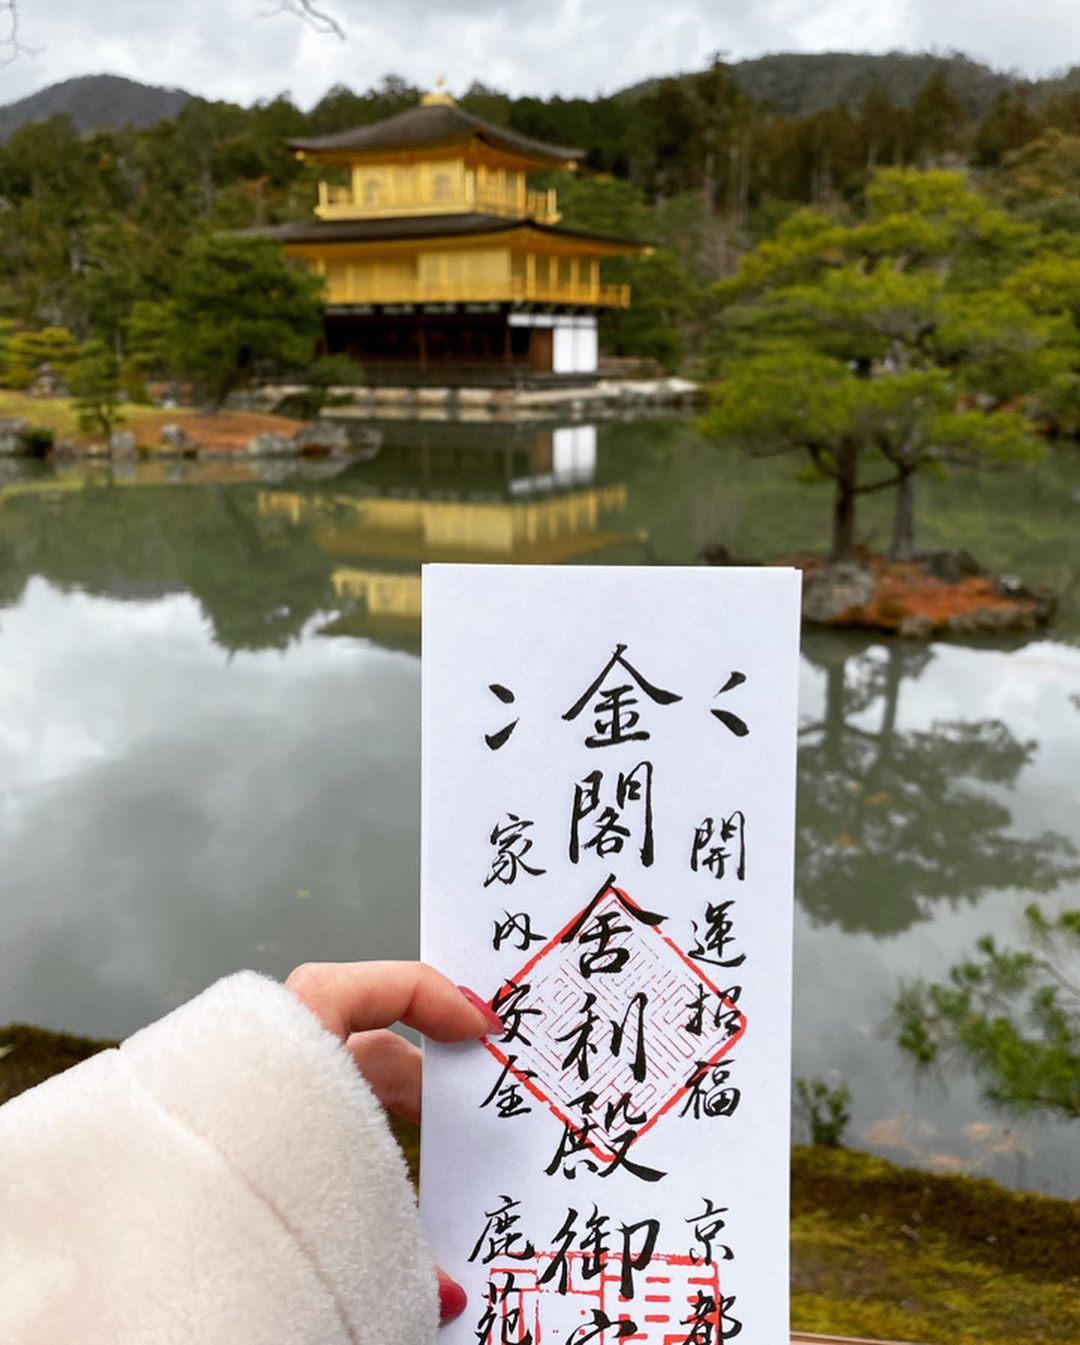 開運招福
京都
金閣舎利殿
御
家内安全
鹿苑